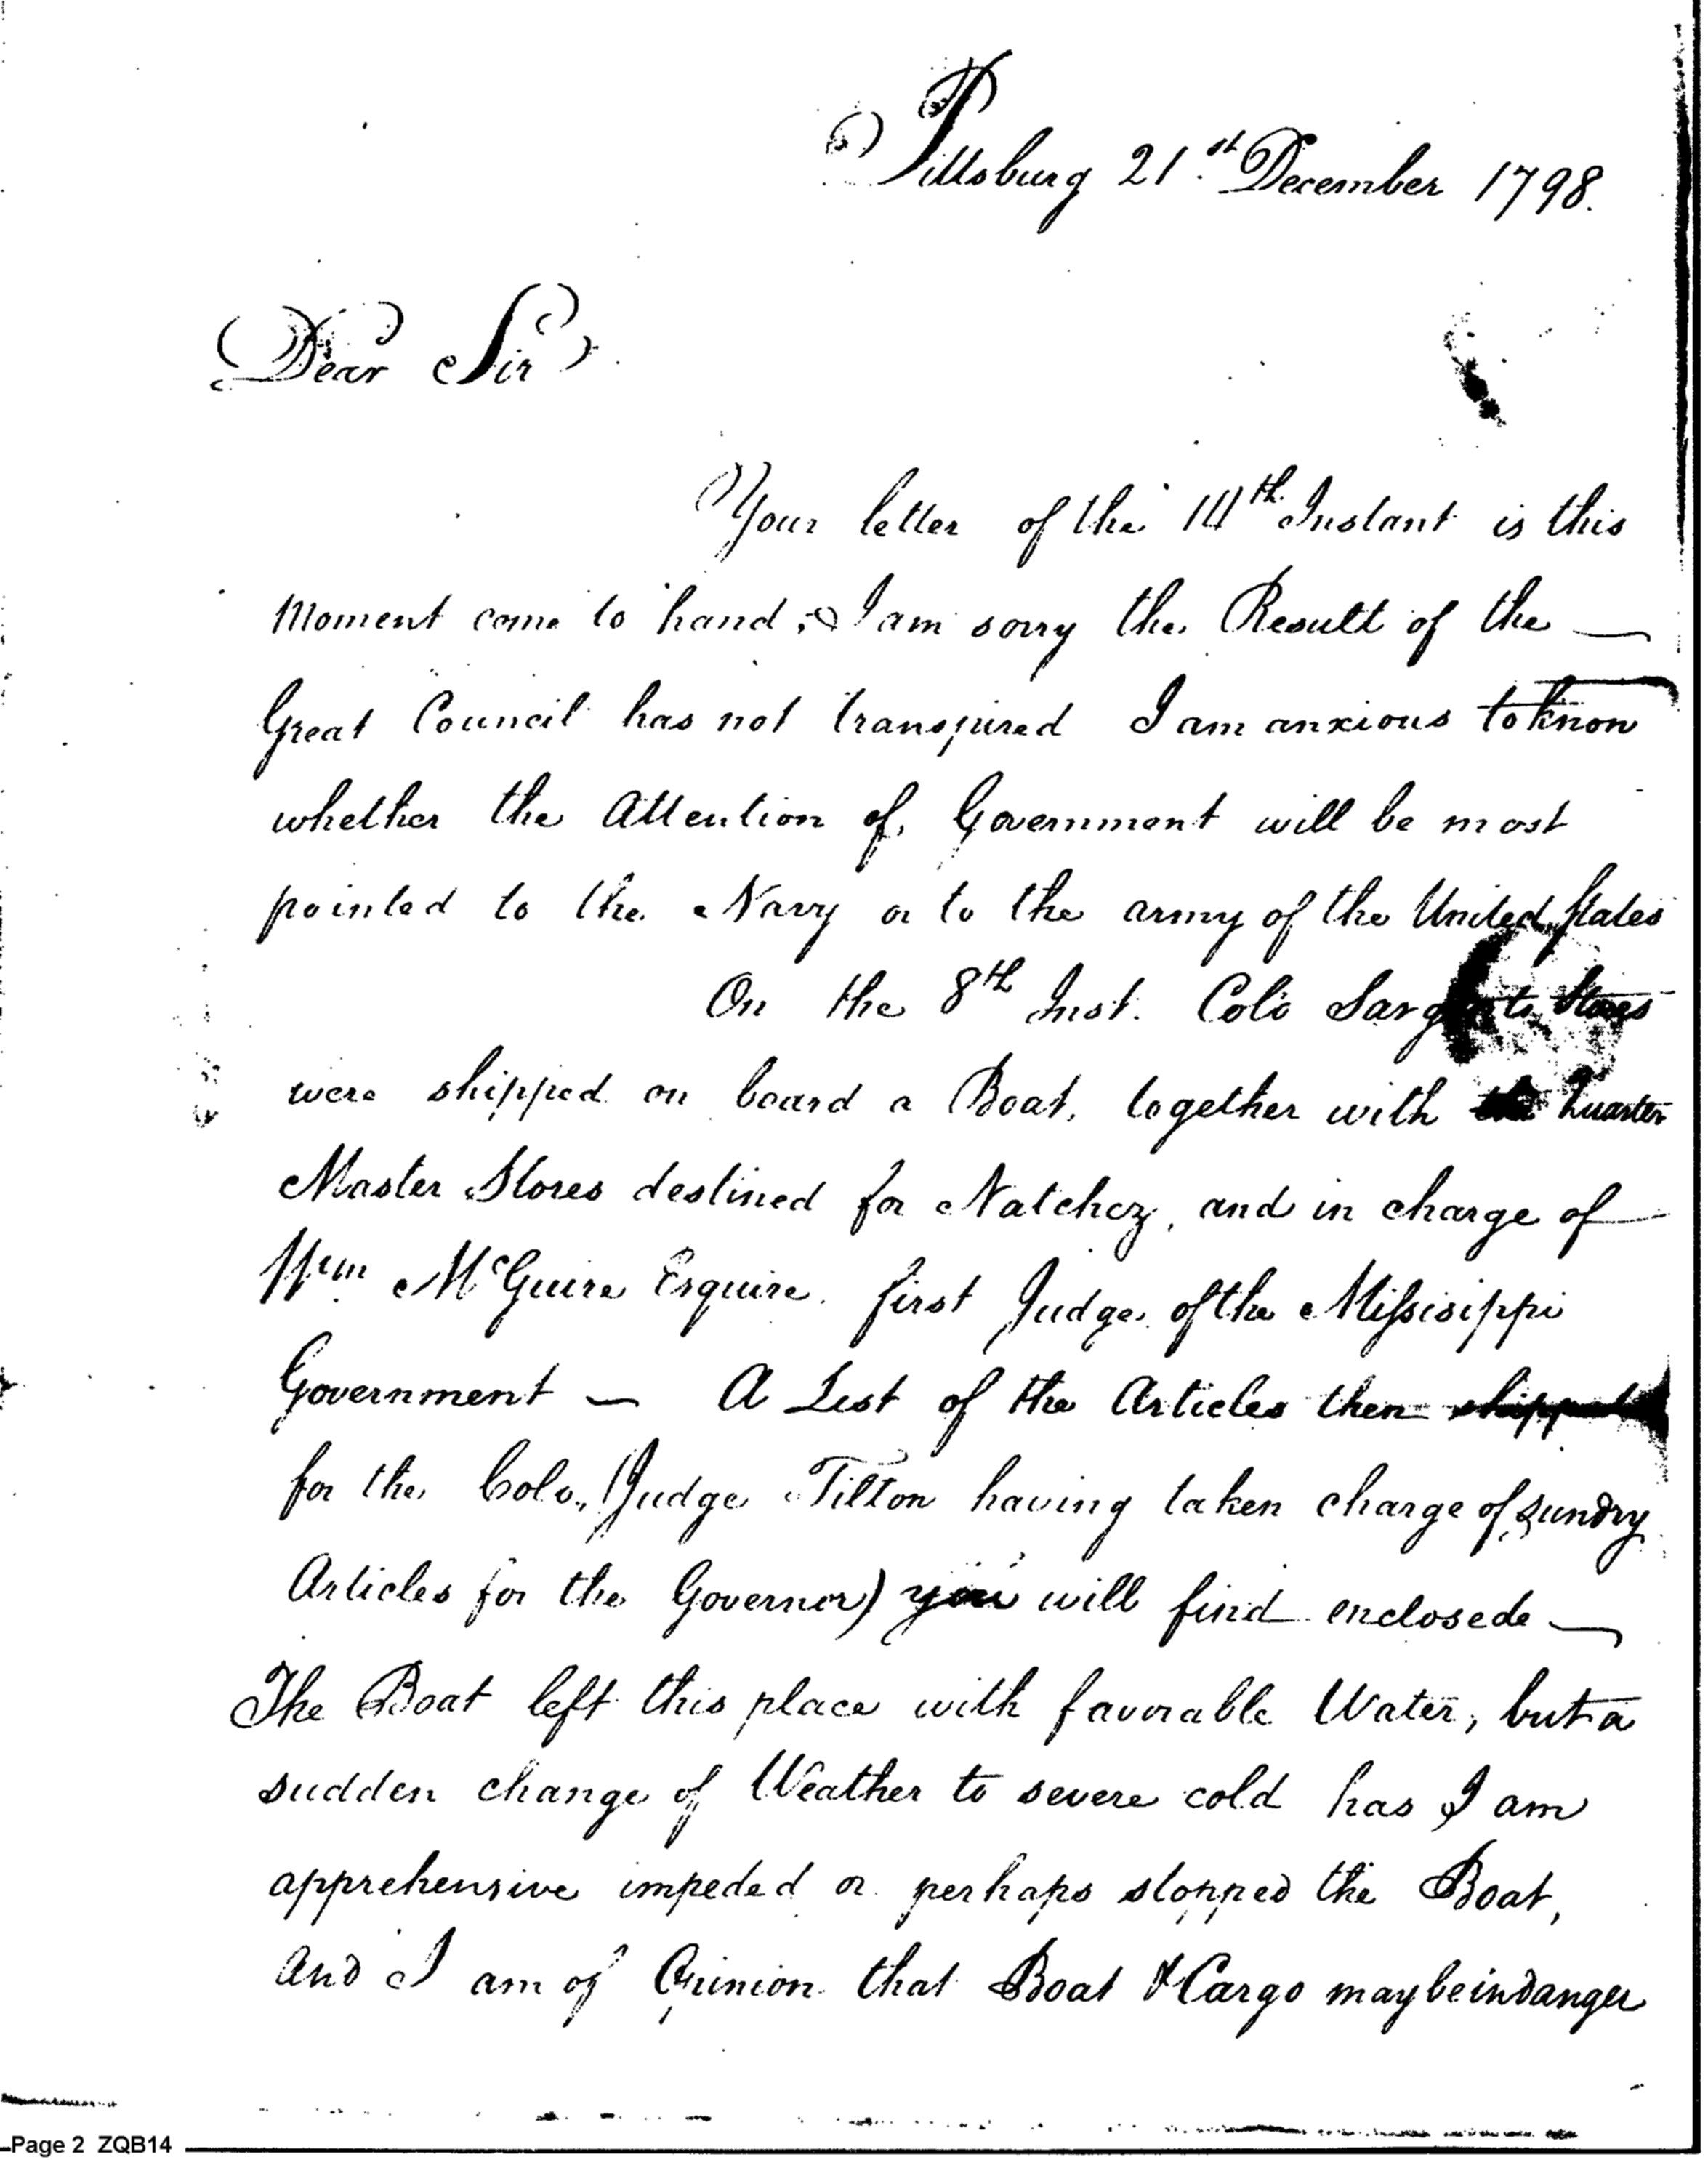 Pittsburg 21st December 1798.
Dear Sir
Your letter of the 14th Instant is this
Moment come to hand, I am sorry the Result of the —
Great Council has not transpired I am anxious to know
whether the Attention of Government will be most
pointed to the Navy or to the army of the United States
On the 8th Inst. Colo Sargents Stores
were shipped on board a Boat, together with the Quarter
Master Stores destined for Natchez, and in charge of
Wm McGuire Esquire. first Judge of the Missisippi
Government — A List of the Articles then shipped
for the Colo., (Judge Tilton having taken charge of sundry
Articles for the Governor) you will find enclosede —
The Boat left this place with favorable Water, but a
sudden change of Weather to severe cold has I am
apprehensive impeded or perhaps stopped the Boat,
And I am of Opinion that Boat & Cargo may be in danger
Page 2 ZQB14